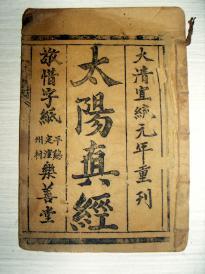 大清宣統元年重刊
太陽真經
敬惜字紙
定
州村
樂善堂